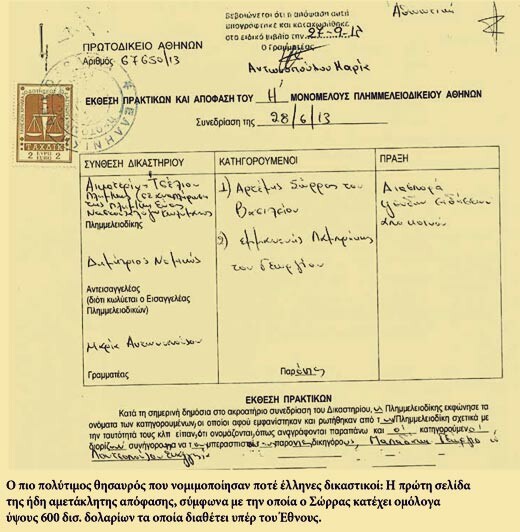 Βεβαιώνεται ότι η απόφαση αυτή
υπογράφτηκε και καταχωρήθηκε
στο ειδικό βιβλίο την 27-9-13
Ο Γραμματέας
Αντωνοπούλου Μαρία
ΠΡΩΤΟΔΙΚΕΙΟ ΑΘΗΝΩΝ
Αριθμός 67650/13
ΕΚΘΕΣΗ ΠΡΑΚΤΙΚΩΝ ΚΑΙ ΑΠΟΦΑΣΗ ΤΟΥ Η ΜΟΝΟΜΕΛΟΥΣ ΠΛΗΜΜΕΛΕΙΟΔΙΚΕΙΟΥ ΑΘΗΝΩΝ
Συνεδρίαση της 28/6/13
ΤΑΧΔΙΚ
2 2
ΣΥΝΘΕΣΗ ΔΙΚΑΣΤΗΡΙΟΥ
Πλημμελειοδίκης
Δημήτριος
Αντεισαγγελέας
(διότι κωλύεται ο Εισαγγελέας
Πλημμελειοδικών)
Μαρία Αντωνοπούλου
Γραμματέας
ΚΑΤΗΓΟΡΟΥΜΕΝΟΙ
1) Αρτέμης Σώρρας του
Βασιλείου
2) Εμμανουήλ Λαμπράκης
του Γεωργίου
ΠΡΑΞΗ
Διασπορά
ψευδών ειδήσεων
από κοινού
ΕΚΘΕΣΗ ΠΡΑΚΤΙΚΩΝ
Κατά τη σημερινή δημόσια στο ακροατήριο συνεδρίαση του Δικαστηρίου, Πλημμελειοδίκης εκφώνησε τα
ονόματα των κατηγορουμένων, οι οποίοι αφού εμφανίστηκαν και ρωτήθηκαν από Πλημμελειοδίκη σχετικά με
την ταυτότητά τους κλπ είπαν, ότι ονομάζονται, όπως αναγράφονται παραπάνω και οι κατηγορούμενοι
Ο πιο πολύτιμος θησαυρός που νομιμοποίησαν ποτέ έλληνες δικαστικοί: Η πρώτη σελίδα
της ήδη αμετάκλητης απόφασης, σύμφωνα με την οποία ο Σώρρας κατέχει ομόλογα
ύψους 600 δισ. δολαρίων τα οποία διαθέτει υπέρ του Έθνους.